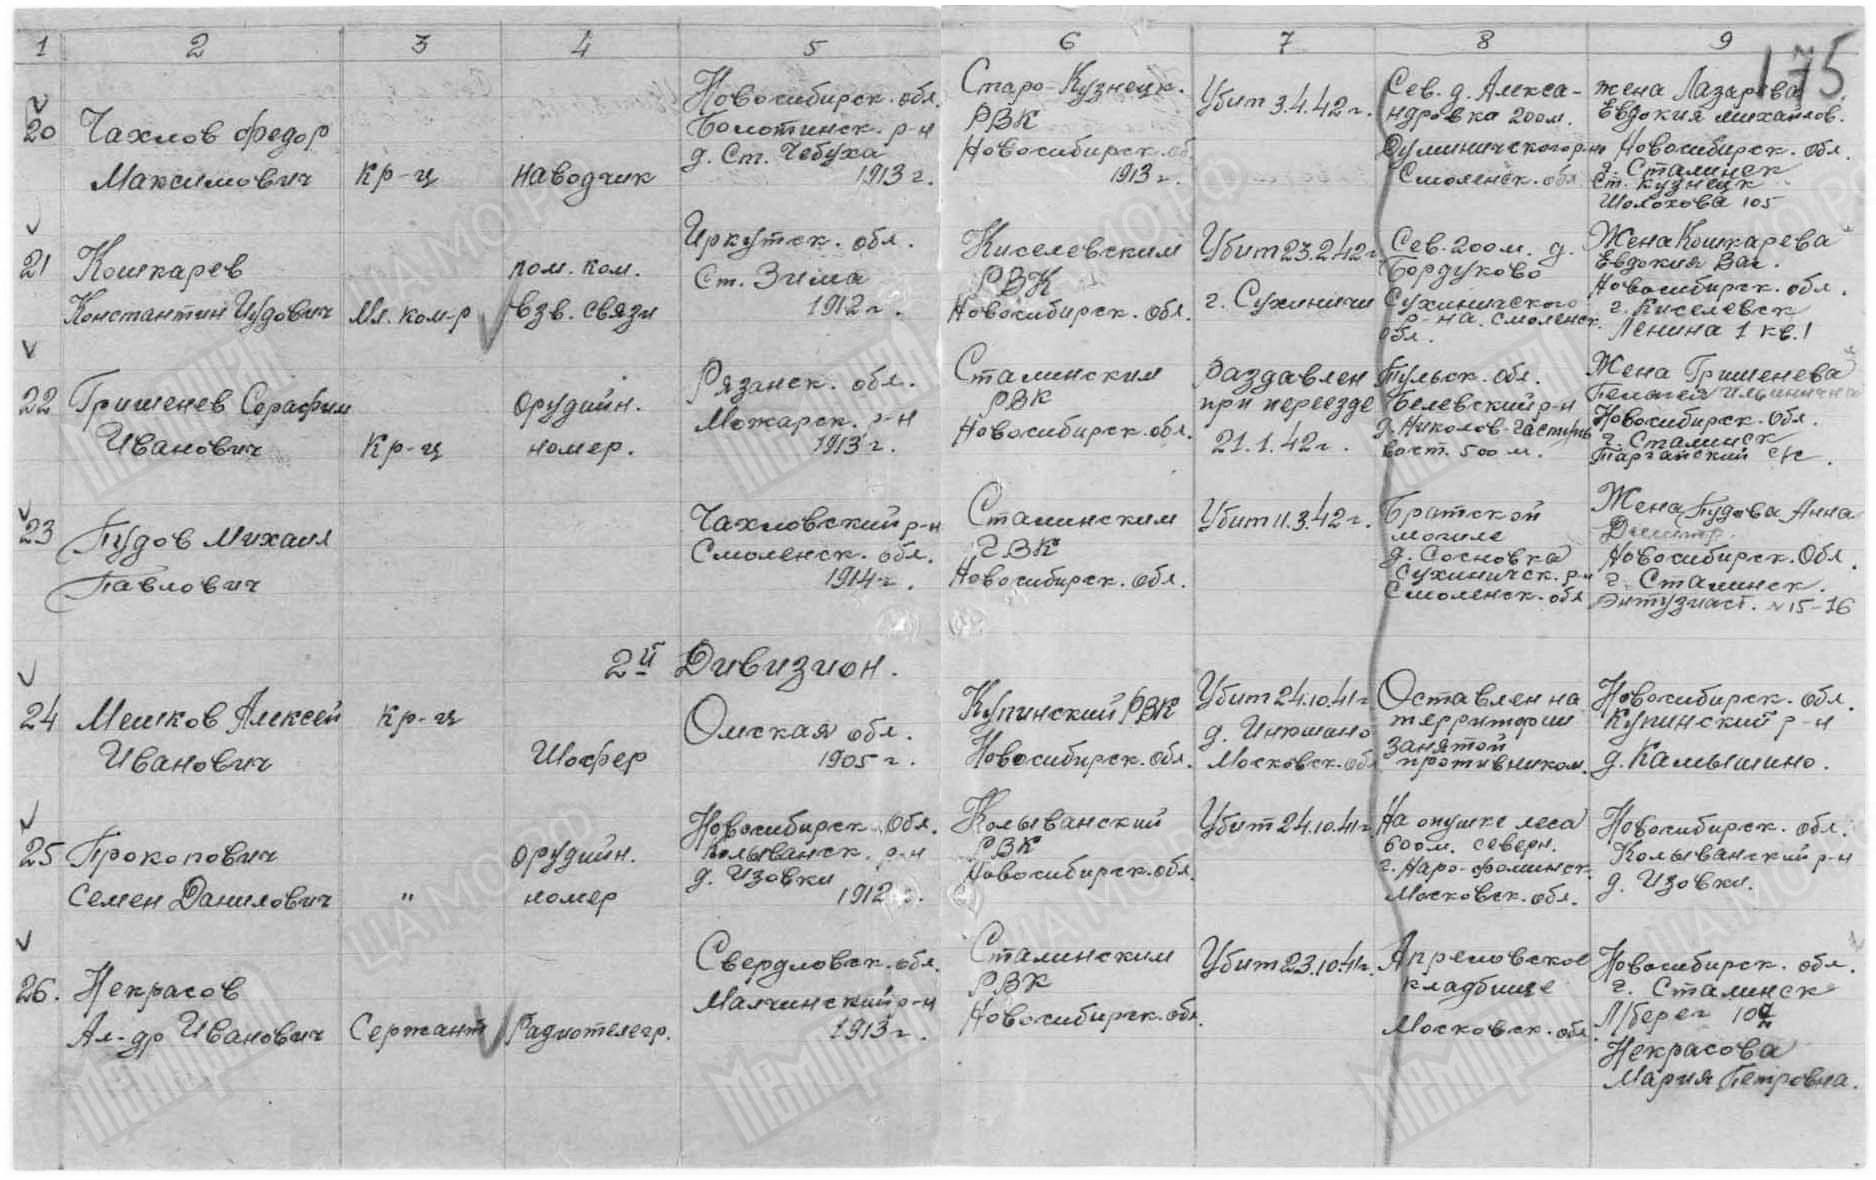 1 2 3 4 5 6 7 8 9
175
20 Чахлов Федор
Максимович
Кр-ц
наводчик
Новосибирск. обл.
Болотинск. р-н
д. Ст. Чебуха
1913 г.
Старо-Кузнецк.
РВК
Новосибирск. об
1913 г.
Убит 3.4.42 г.
Сев. д. Алекса-
ндровка 200 м.
Думиничского р-на
Смоленск. обл
жена Лазарева
Евдокия Михайлов.
Новосибирск. обл.
г. Сталинск
Ст. Кузнецк
Шолохова 105
21 Кошкарев
Константин Иудович
Мл. ком-р
пом. ком.
взв. связи
Иркутск. обл.
Ст. Зима
1912 г.
Киселевским
РВК
Новосибирск. обл.
Убит 23.2.42 г.
г. Сухиничи
Сев. 200 м. д.
Бордуково
Сухиничского
р-на. Смоленск.
обл.
Жена Кошкарева
Евдокия Вас.
Новосибирск. обл.
г. Киселевск
Ленина 1 кв. 1
22 Гришенев Серафим
Иванович
Кр-ц
Орудийн.
номер.
Рязанск. обл.
Можарск. р-н
1913 г.
Сталинским
РВК
Новосибирск. обл.
Раздавлен
при переезде
21.1.42 г.
Тульск. обл.
Белевский р-н
вост. 500 м.
Жена Гришенева
Пелагея Ильинична
Новосибирск. обл.
г. Сталинск
23 Пудов Михаил
Павлович
Чахловский р-н
Смоленск. обл.
1914 г.
Сталинским
ГВК
Новосибирск. обл.
Убит 11.3.42 г.
Братской
могиле
д. Сосновка
Сухиничск. р-н
Смоленск. обл
Жена Пудова Анна
Дмитр.
Новосибирск. Обл.
г. Сталинск.
Энтузиаст. № 15-16
2й Дивизион.
24 Мешков Алексей
Иванович
Кр-ц
Шофер
Омская обл.
1905 г.
Купинский РВК
Новосибирск. обл.
Убит 24.10.41 г
д. Инюшино
Московск. об
Оставлен на
территории
занятой
противником.
Новосибирск. обл.
Купинский р-н
д. Камышино.
25 Прокопович
Семен Данилович
"
Орудийн.
номер
Новосибирск. Обл.
Колыванск. р-н
д. Изовки
1912 г.
Колыванский
РВК
Новосибирск. обл.
Убит 24.10.41 г
На опушке леса
600 м. северн.
г. Наро-фоминск.
Московск. обл.
Новосибирск. обл.
Колыванский р-н
д. Изовки.
26. Некрасов
Ал-др Иванович
Сержант
Радиотелегр.
Свердловск. обл.
Малчинский р-н
1913 г.
Сталинским
РВК
Новосибирск. обл.
Убит 23.10.41 г.
Апреловское
кладбище
Московск. обл
Новосибирск. обл.
г. Сталинск
Л/берег
Некрасова
Мария Петровна.